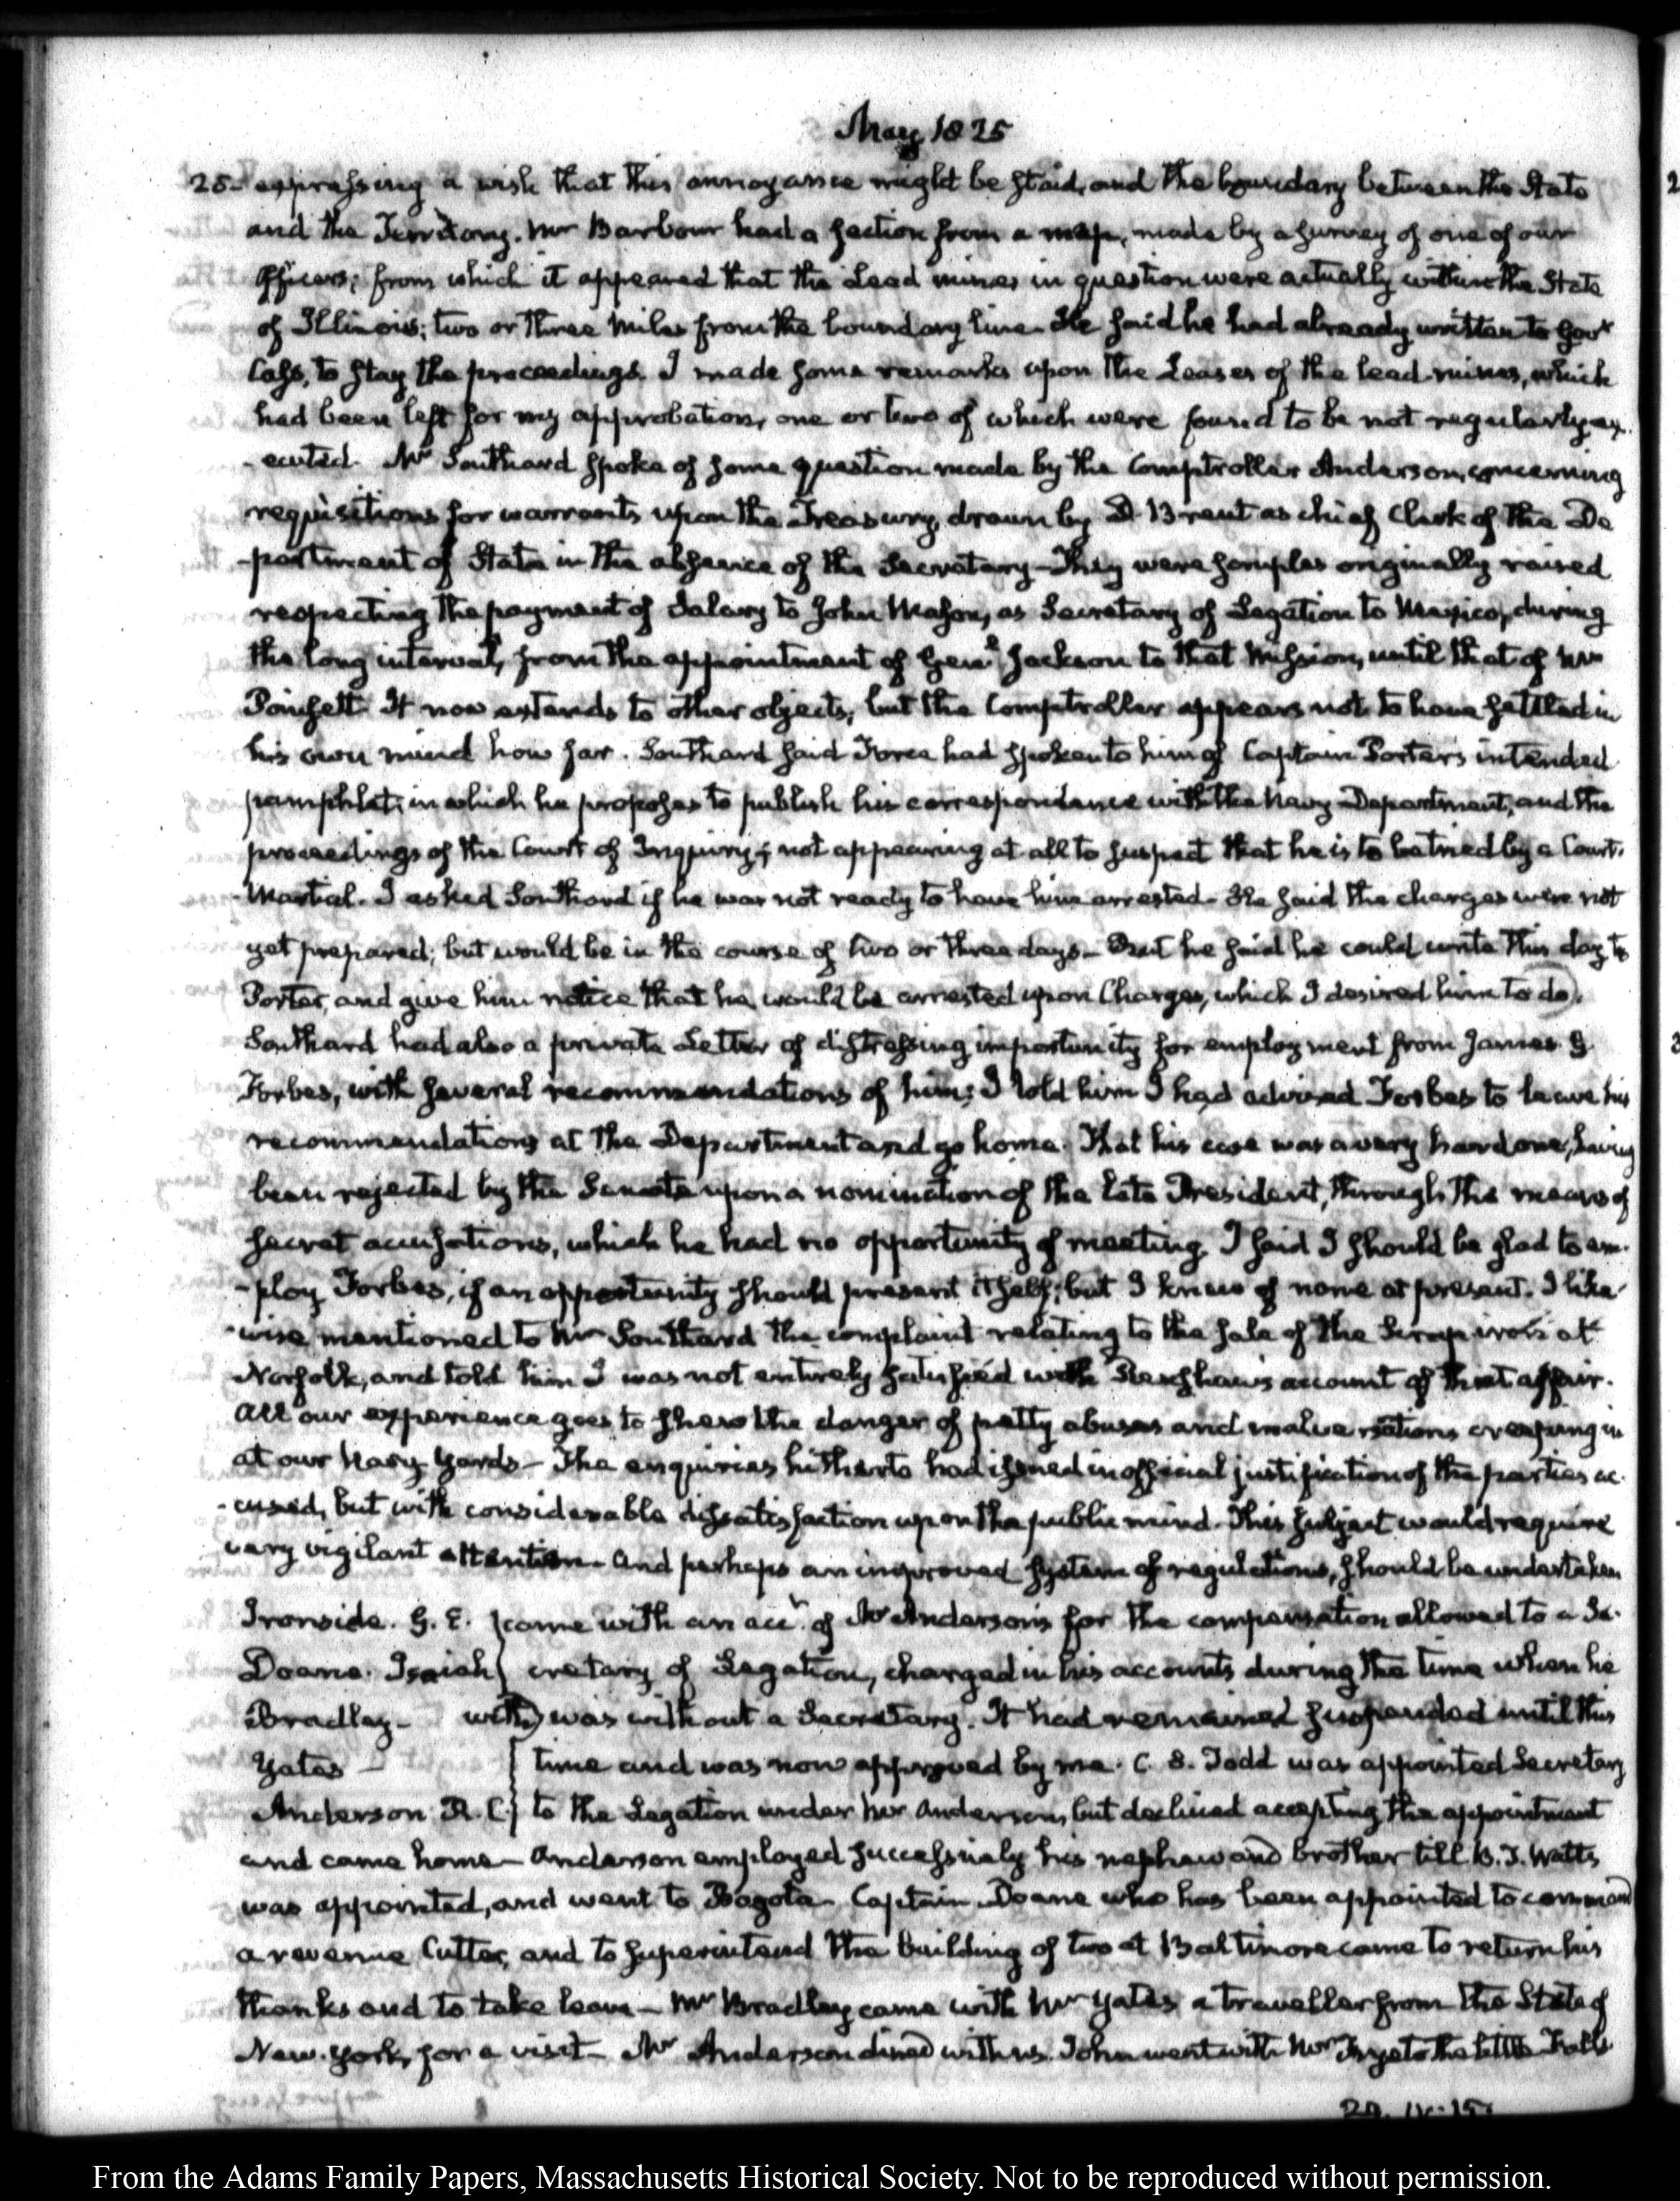 May 1825
28- expressing a wish that this annoyance might be staid, and the boundary between the State
and the Territory. Mr Barbour had a section from a map, made by a survey of one of our
Officers; from which it appeared that the Lead mines in question were actually within the State
of Illinois; two or three miles from the boundary line. He said he had already written to Govr
Cass, to stay the proceedings. I made some remarks upon the Leases of the lead-mines, which
had been left for my approbation, one or two of which were found to be not regularly ex-
-ecuted. Mr Southard spoke of some question made by the Comptroller Anderson, concerning
requisitions for warrants upon the Treasury, drawn by D Brent as chief Clerk of the De
-partment of State in the absence of the Secretary- They were scruples originally raised
respecting the payment of Salary to John Mason, as Secretary of Legation to Mexico, during
the long interval, from the appointment of Genl Jackson to that Mission, until that of Mr
Poinsett. It now extends to other objects; but the Comptroller appears not to have settled in
his own mind how far. Southard said Force had spoken to him of Captain Porter's intended
pamphlet; in which he proposes to publish his correspondence with the Navy Department, and the
proceedings of the Court of Inquiry; not appearing at all to suspect that he is to be tried by a Court-
-Martial. I asked Southard if he was not ready to have him arrested- He said the charges were not
yet prepared; but would be in the course of two or three days- But he said he could write this day to
Porter, and give him notice that he would be arrested upon Charges, which I desired him to do.
Southard had also a private Letter of distressing importunity for employment from James G.
Forbes, with several recommendations of him; I told him I had advised Forbes to leave his
recommendations at the Department and go home. That his case was a very hard one, having
been rejected by the Senate upon a nomination of the late President, through the means of
secret accusations, which he had no opportunity of meeting. I said I should be glad to em-
-ploy Forbes, if an opportunity should present itself; but I knew of none at present. I like-
-wise mentioned to Mr Southard the complaint relating to the sale of the Scrap iron at
Norfolk, and told him I was not entirely satisfied with Renshaw's account of that affair.
All our experience goes to shew the danger of petty abuses and malversations creeping in
at our Navy Yards- The enquiries hitherto had issued in official justification of the parties ac-
-cused, but with considerable dissatisfaction upon the public mind. This subject would require
very vigilant attention- and perhaps an improved system of regulations, should be undertaken
Ironside. G. E. } came with an acct of Mr Anderson's for the compensation allowed to a Se-
Doane. Isaiah } cretary of Legation, charged in his accounts during the time when he
Bradley- with } was without a Secretary. It had remained suspended until this
Yates - } time and was now approved by me. C. S. Todd was appointed Secretary
Anderson R. C. } to the Legation under Mr Anderson, but declined accepting the appointment
and came home- Anderson employed successively his nephew and brother till B. T. Watts
was appointed, and went to Bogota- Captain Doane who has been appointed to command
a revenue Cutter, and to superintend the building of two at Baltimore came to return his
thanks and to take leave- Mr Bradley came with Mr Yates a traveller from the State of
New-York, for a visit- Mr Anderson dined with us. John went with Mr Frye to the little Falls
From the Adams Family Papers, Massachusetts Historical Society. Not to be reproduced without permission.